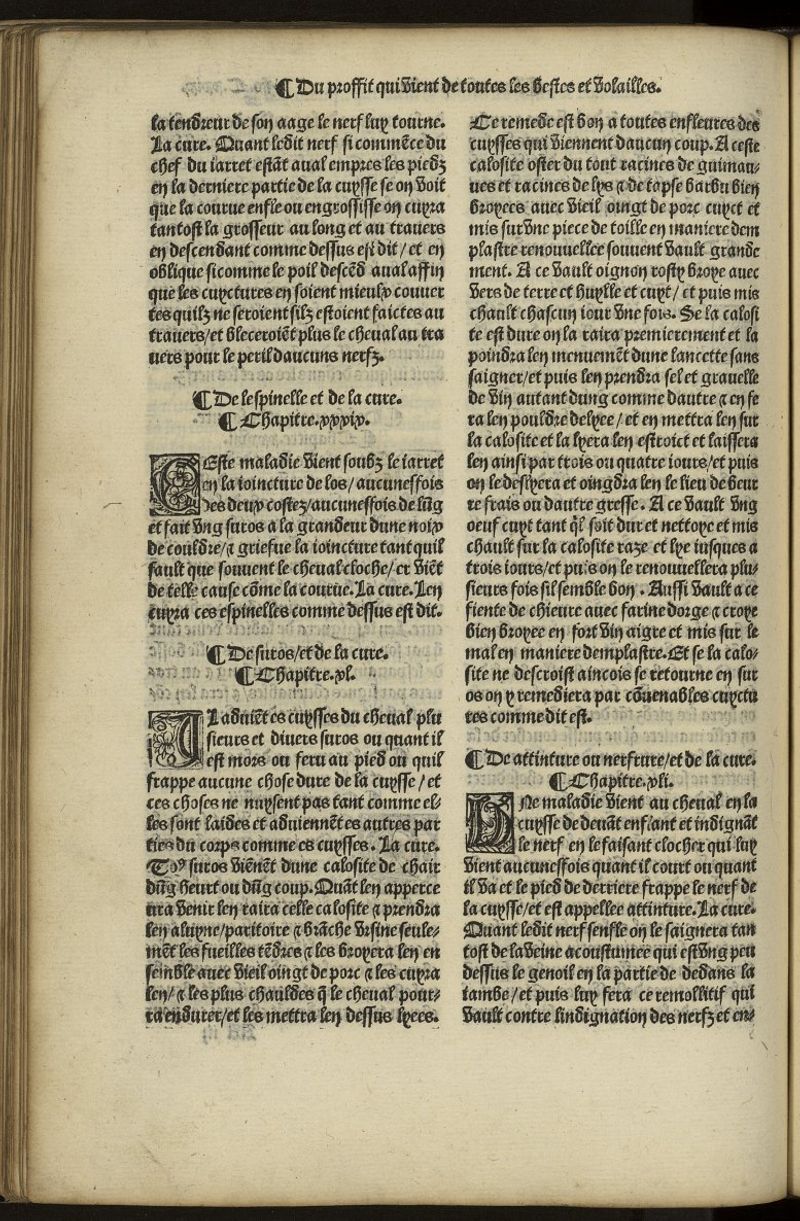 ¶ Du proffit qui vient de toutes les bestes et volailles.
la tendreur de son aage le nerf luy tourne.
La cure. Quant ledit nerf si commẽce du
chef du iarret estãt aual empres les piedz
en la derniere partie de la cuysse se on voit
que la courue enfle ou engrossisse on cuyra
tantost la grosseur au long et au trauers
en descendant comme dessus est dit/ et en
oblique sicomme le poil descẽd aual affin
que les cuyctures en soient mieulx couuer
tes quilz ne seroient silz estoient faictes au
trauers/et bleceroiẽt plus le cheual au tra
uers pour le peril daucuns nerfz.
¶ De lespinelle et de la cure.
¶ Chapitre.xxxix.
CEste maladie vient soubz le iarret
en la ioincture de los/ aucuneffois
des deux costez/aucuneffois de lũg
et fait vng suros a la grandeur dune noix
de couldre/⁊ griefue la ioincture tant quil
fault que souuent le cheual cloche/et viẽt
de telle cause cõme la courue. La cure. Len
cuyra ces espinelles comme dessus est dit.
¶ De suros/et de la cure.
¶ Chapitre.xl.
IL aduiẽt es cuysses du cheual plu
sieurs et diuers suros ou quant il
est mors ou feru au pied ou quil
frappe aucune chose dure de la cuysse/ et
ces choses ne nuysent pas tant comme el⸗
les sont laides et aduiennẽt es autres par
ties du corps comme es cuysses. La cure.
Toꝰ suros viẽnẽt dune calosite de chair
dũg heurt ou dũg coup. Quãt len apperce
ura venir len raira celle calosite ⁊ prendra
len aluyne/paritoire ⁊ brãche vrsine seule⸗
mẽt les fueilles tẽdres ⁊ les broyera len en
semble auec vieil oingt de porc ⁊ les cuyra
len/ ⁊ les plus chauldes q̃ le cheual pour⸗
ra endurer/et les mettra len dessus lyees.
Ce remede est bon a toutes enfleures des
cuysses qui viennent daucun coup. A ceste
calosite oster du tout racines de guimau⸗
ues et racines de lys ⁊ de tapse barbu bien
broyees auec vieil oingt de porc cuyct et
mis sur vne piece de toille en maniere dem
plastre renouuellee souuent vault grande
ment. A ce vault oignon rosty broye auec
vers de terre et huylle et cuyt/ et puis mis
chault chascun iour vne fois. Se la calosi
te est dure on la raira premierement et la
poindra len menuemẽt dune lancette sans
saigner/et puis len prendra sel et grauelle
de vin autant dung comme dautre ⁊ en fe
ra len pouldre delyee/ et en mettra len sur
la calosite et la lyera len estroict et laissera
len ainsi par trois ou quatre iours/et puis
on le deslyera et oingdra len le lieu de beur
re frais ou dautre gresse. A ce vault vng
oeuf cuyt tant q̃l soit dur et nettoye et mis
chault sur la calosite raze et lye iusques a
trois iours/et puis on le renouuellera plu⸗
sieurs fois sil semble bon. Aussi vault a ce
fiente de chieure auec farine dorge ⁊ croye
bien broyee en fort vin aigre et mis sur le
mal en maniere demplastre. Et se la calo⸗
site ne descroist aincois se retourne en sur
os on y remediera par cõuenables cuyctu
res comme dit est.
¶ De attinture ou nerfrure/et de la cure.
¶ Chapitre.xli.
VNe maladie vient au cheual en la
cuysse de deuãt enflant et indignãt
le nerf en le faisant clocher qui luy
vient aucuneffois quant il court ou quant
il va et le pied de derriere frappe le nerf de
la cuysse/et est appellee attinture. La cure.
Quant ledit nerf senfle on le saignera tan
tost de la veine acoustumee qui est vng peu
dessus le genoil en la partie de dedans la
iambe/et puis luy fera ce remollitif qui
vault contre lindignation des nerfz et en⸗